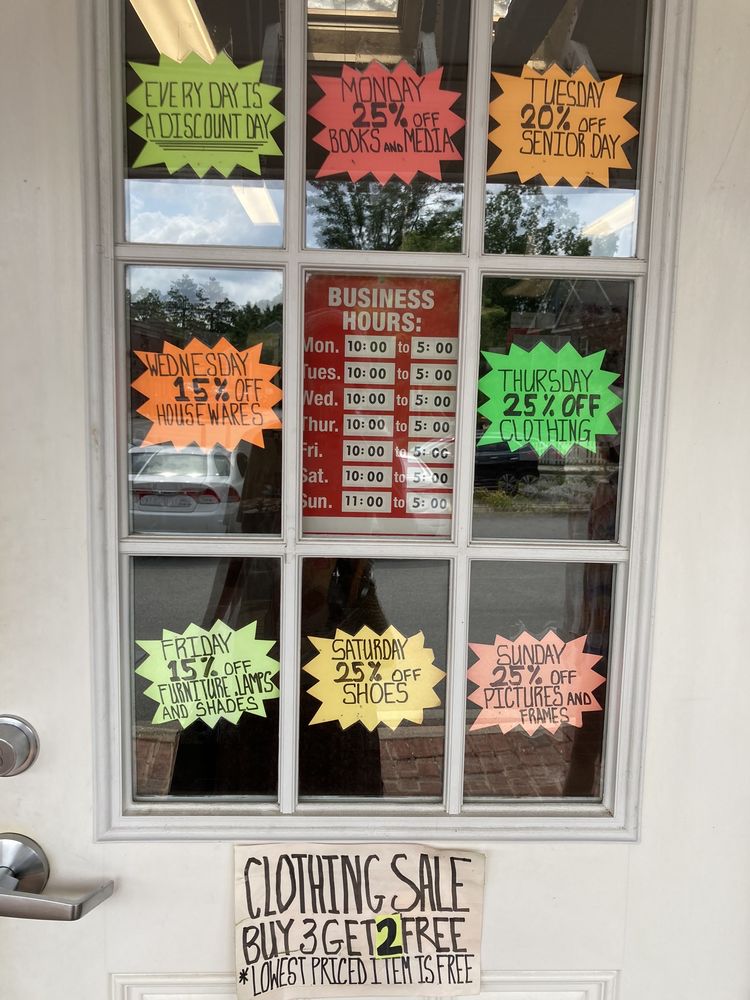 EVERY DAY IS
A DISCOUNT DAY
MONDAY
25% OFF
BOOKS AND MEDIA
TUESDAY
20% OFF
SENIOR DAY
WEDNESDAY
15% OFF
HOUSEWARES
BUSINESS
HOURS:
Mon. 10:00 to 5:00
Tues. 10:00 to 5:00
Wed. 10:00 to 5:00
Thur. 10:00 to 5:00
Fri. 10:00 to 5:00
Sat. 10:00 to 5:00
Sun. 11:00 to 5:00
THURSDAY
25% OFF
CLOTHING
FRIDAY
15% OFF
FURNITURE, LAMPS
AND SHADES
SATURDAY
25% OFF
SHOES
SUNDAY
25% OFF
PICTURES AND
FRAMES
CLOTHING SALE
BUY 3 GET 2 FREE
*LOWEST PRICED ITEM IS FREE